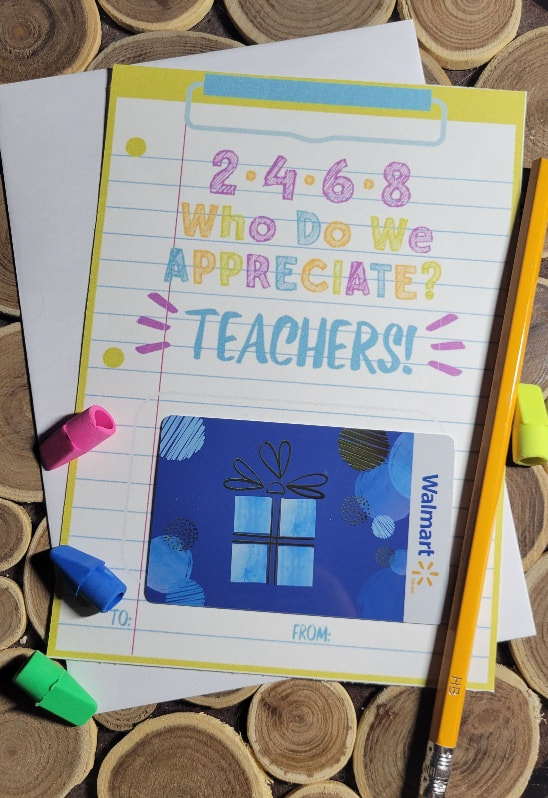 2·4·6·8
Who Do We
APPRECIATE?
TEACHERS!
Walmart
TO:
FROM:
HB